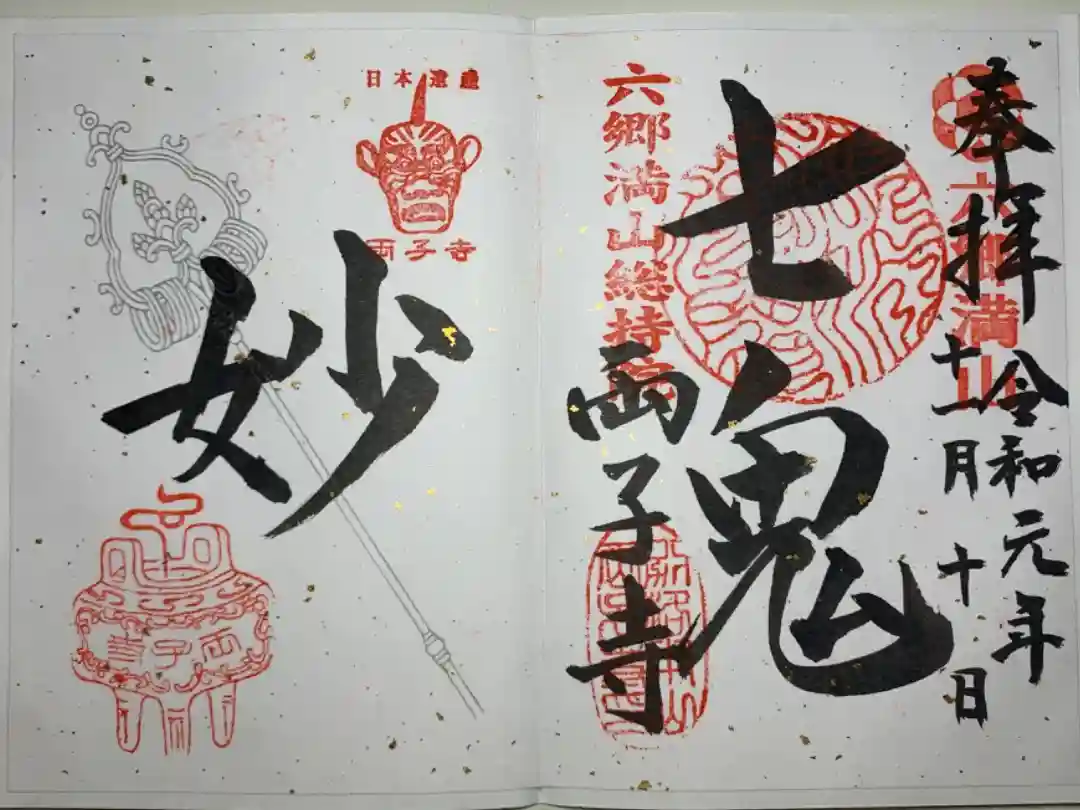 奉拝
六郷満山
令和元年
十一月十日
七鬼
六郷満山総持院
両子寺
日本遺産
両子寺
妙
両子寺